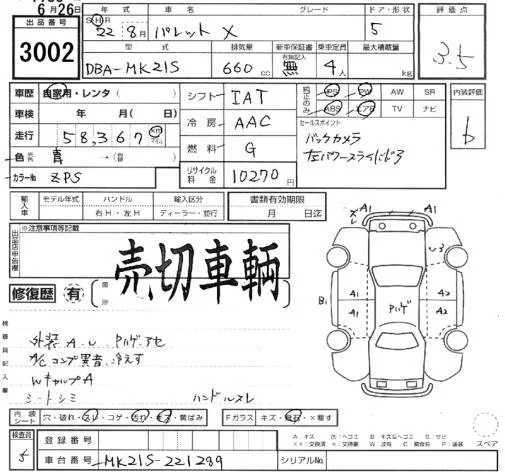 6月26日
年式 車名 グレード ドア・形状 評価点
出品番号 22年8月 パレット X 5 3.5
3002
型式 排気量 新車保証書 有無記入 乗車定員 最大積載量
DBA-MK21S 660cc 無 4人 kg
車歴 自家用・レンタ( ) シフト IAT 純正のみ PS PW AW SR 内装評価
車検 年 月(日) 冷房 AAC ABS エアB TV ナビ b
走行 58,367 km マイル 燃料 G セールスポイント
色 青 → ( ) バックカメラ
左パワースライドドア
カラーNo ZPS リサイクル料金 10270円
輸入車 モデル年式 ハンドル 右H・左H 輸入区分 ディーラー・並行 書類有効期限 月 日迄
出品店申告欄 ※注意事項等記載
売切車輌
修復歴 有 箇所
検査員記入欄
外装 A U Pハゲ アセ
A/C コンプ異音 冷えず
WキャップA
シートシミ ハンドルスレ
A1 A1
U3
B1 A1 A2
Pハゲ
A1 A2
A1
内装シート 穴・破れ・スレ・コゲ・汚れ・キズ・黄ばみ Fガラス キズ・飛石・×要す
A キズ U ヘコミ B キズ&ヘコミ S サビ
×× 交換済 × 要交換 W 波有 C 腐食 P 塗装 スペア
検査員 5 登録番号
車台番号 MK21S-221289 シリアルNo.